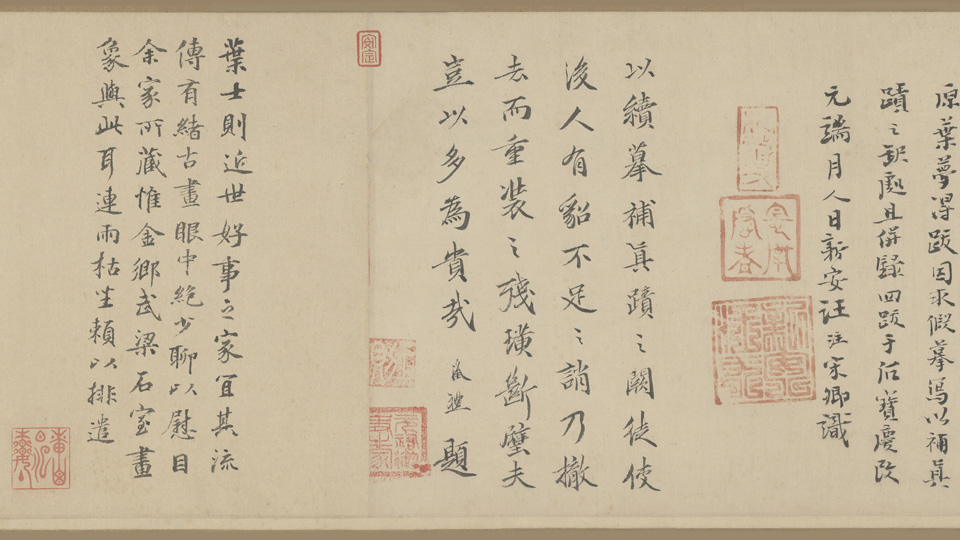 原葉夢得跋因求假摹寫以補真
蹟之缺處且併錄四跋于后寶慶改
元端月人日新安汪注宋卿識
以續摹補真蹟之闕徒使
後人有貂不足之誚乃撤
去而重裝之殘璜斷璧夫
豈以多為貴哉
題
安定
葉士則近世好事之家宜其流
傳有緒古畫眼中絕少聊以慰目
余家所藏惟金鄉武梁石室畫
象與此耳連雨枯坐賴以排遣